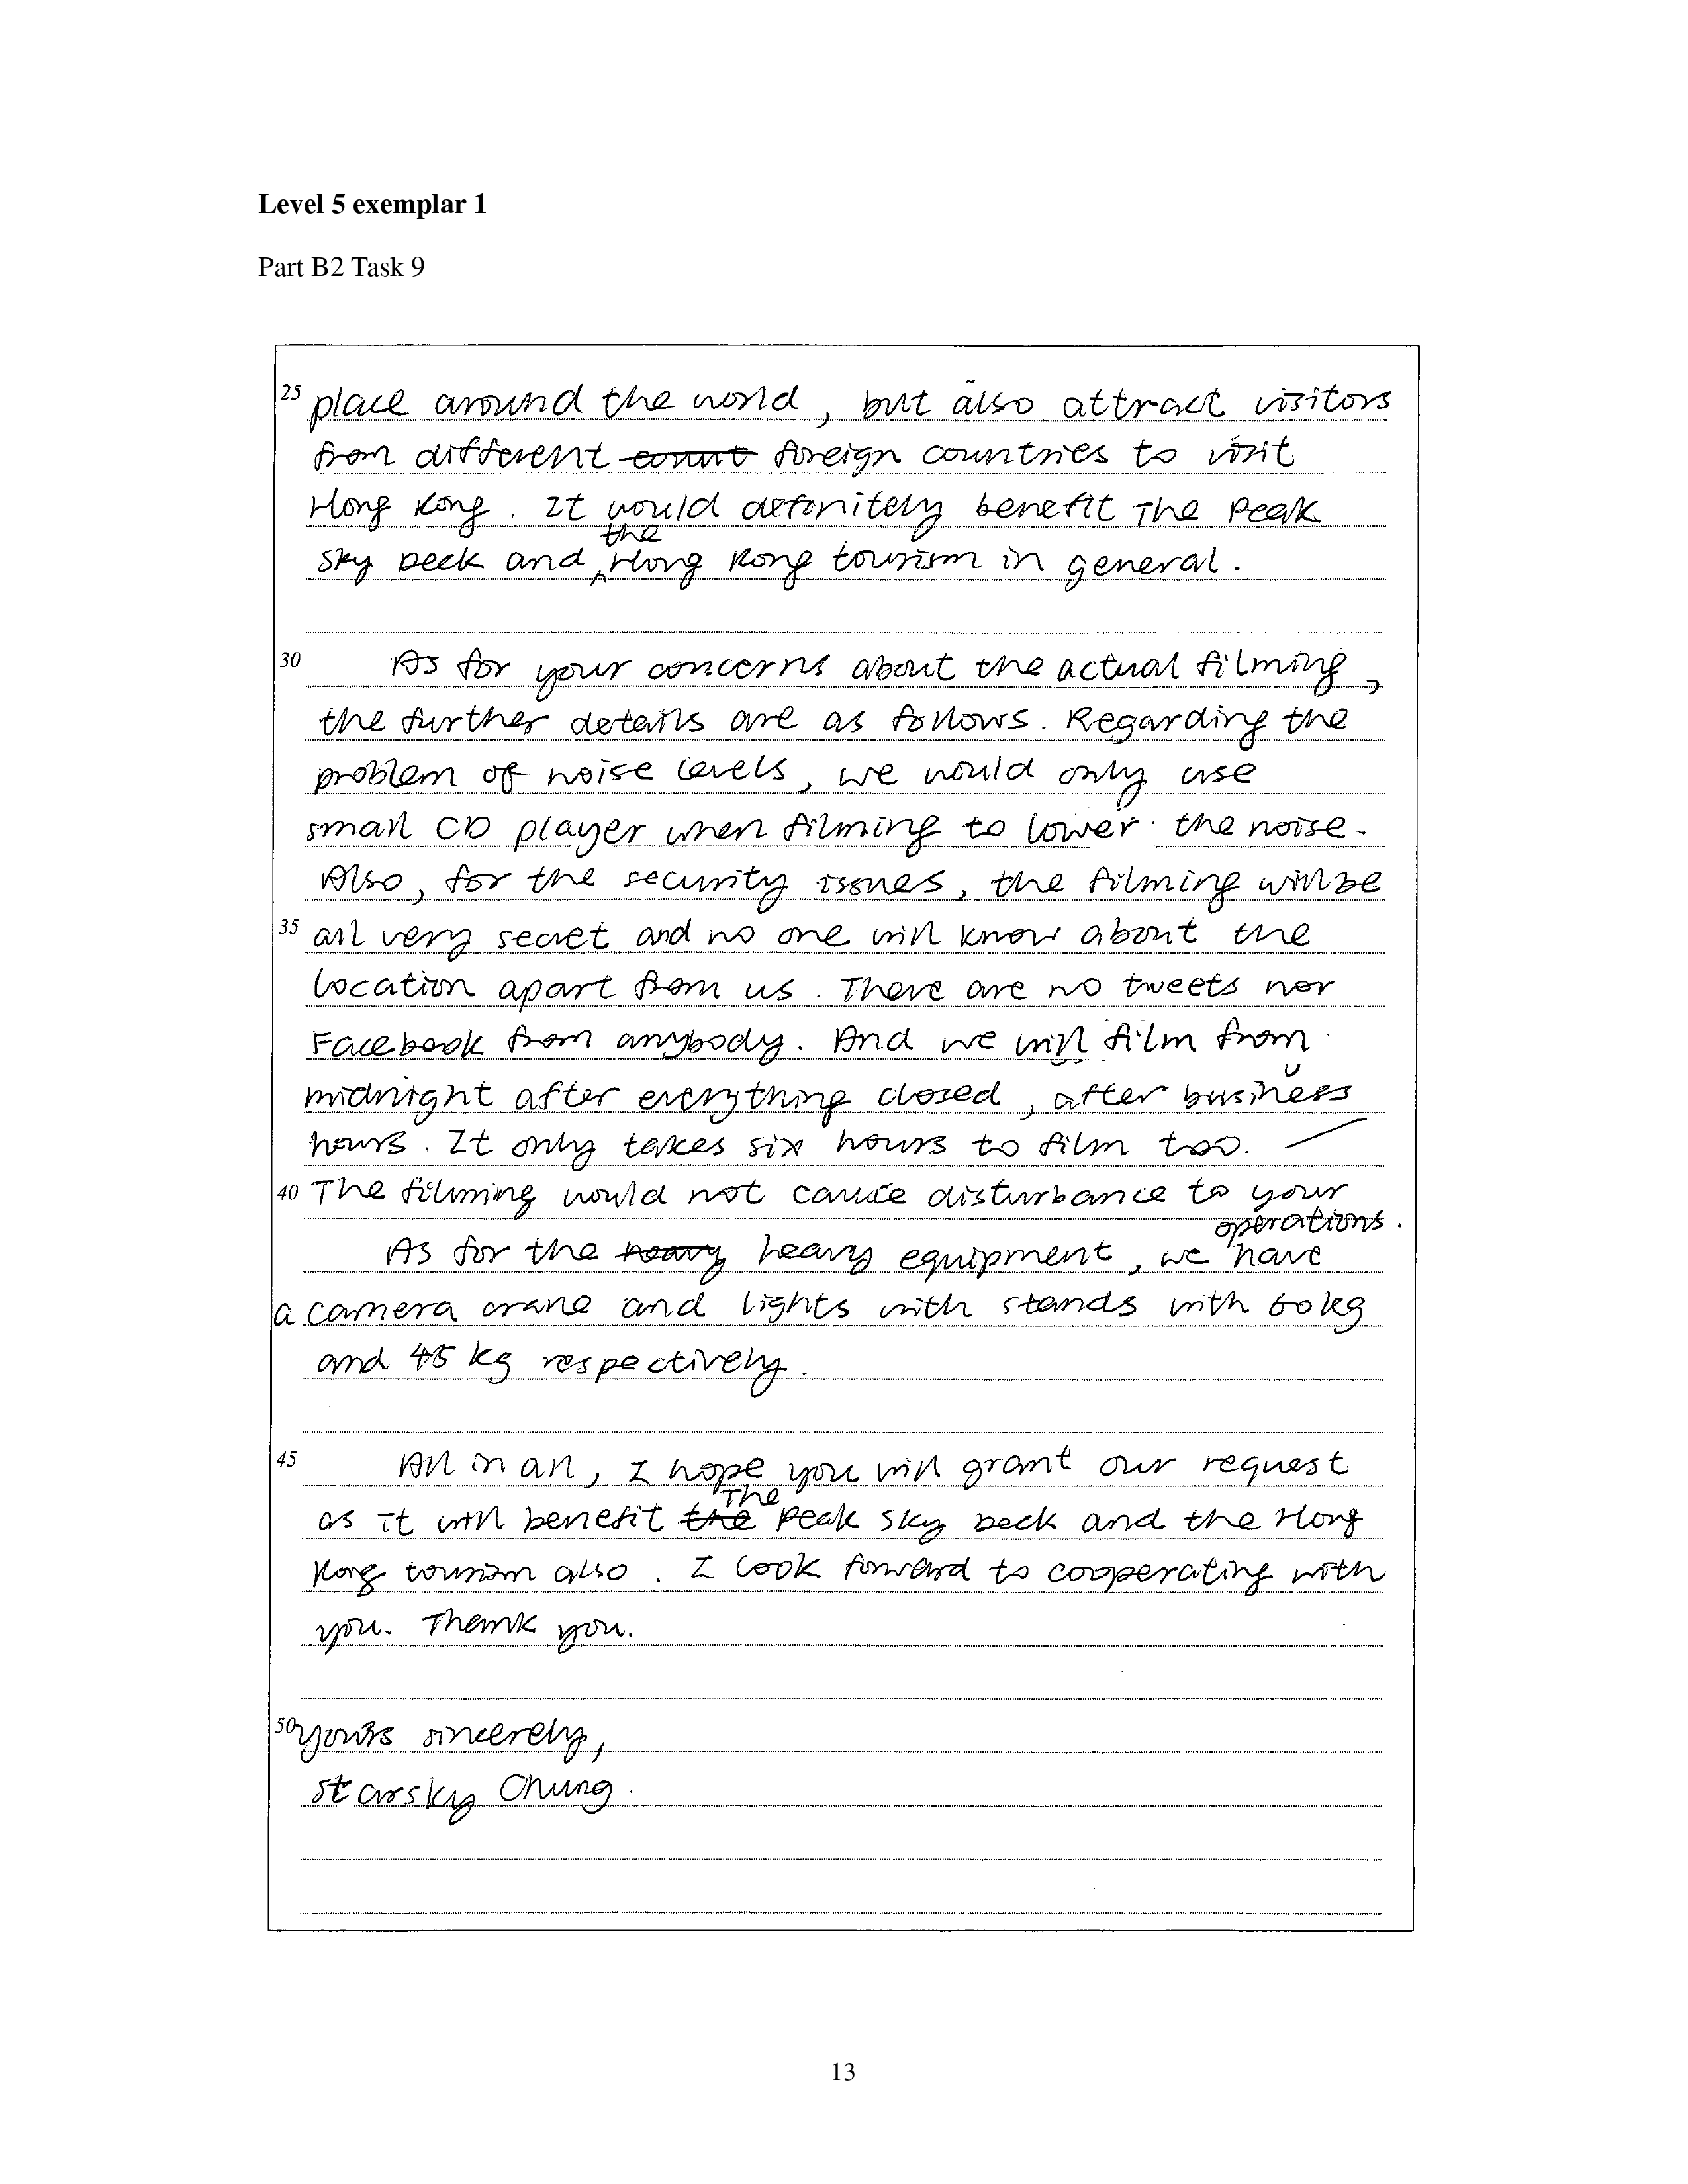 Level 5 exemplar 1
Part B2 Task 9
25 place around the world, but also attract visitors
from different count foreign countries to visit
Hong Kong. It would definitely benefit The Peak
the
Sky Deck and Hong Kong tourism in general.
30 As for your concerns about the actual filming,
the further details are as follows. Regarding the
problem of noise levels, we would only use
small CD player when filming to lower the noise.
Also, for the security issues, the filming will be
35 all very secret and no one will know about the
location apart from us. There are no tweets nor
Facebook from anybody. And we will film from
midnight after everything closed, after business
hours. It only takes six hours to film too.
40 The filming would not cause disturbance to your
operations.
As for the heavy heavy equipment, we have
a camera crane and lights with stands with 60kg
and 45 kg respectively.
45 All in all, I hope you will grant our request
The
as it will benefit the Peak Sky Deck and the Hong
Kong tourism also. I look forward to cooperating with
you. Thank you.
50 Yours sincerely,
Starsky Chung.
13